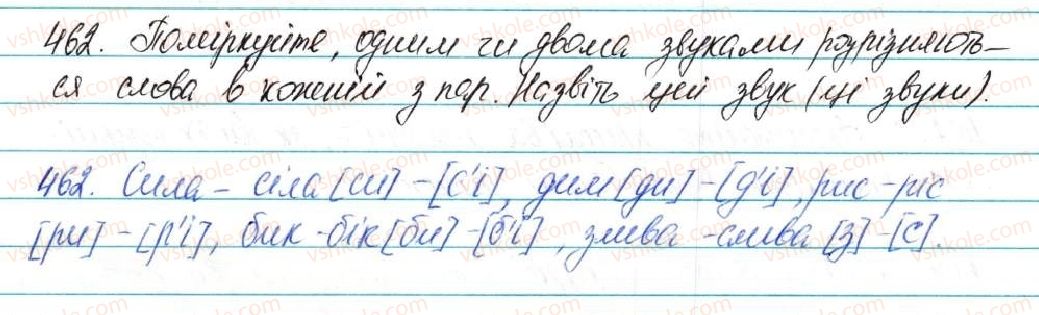 462. Поміркуйте, одним чи двома звуками розрізняють-
ся слова в кожній з пар. Назвіть цей звук (ці звуки).
462. Сила – сіла [си] – [с'і], дим [ди] – [д'і], рис – ріс
[ри] – [р'і], бик - бік [би] – [б'і], злива - слива [з] – [с].